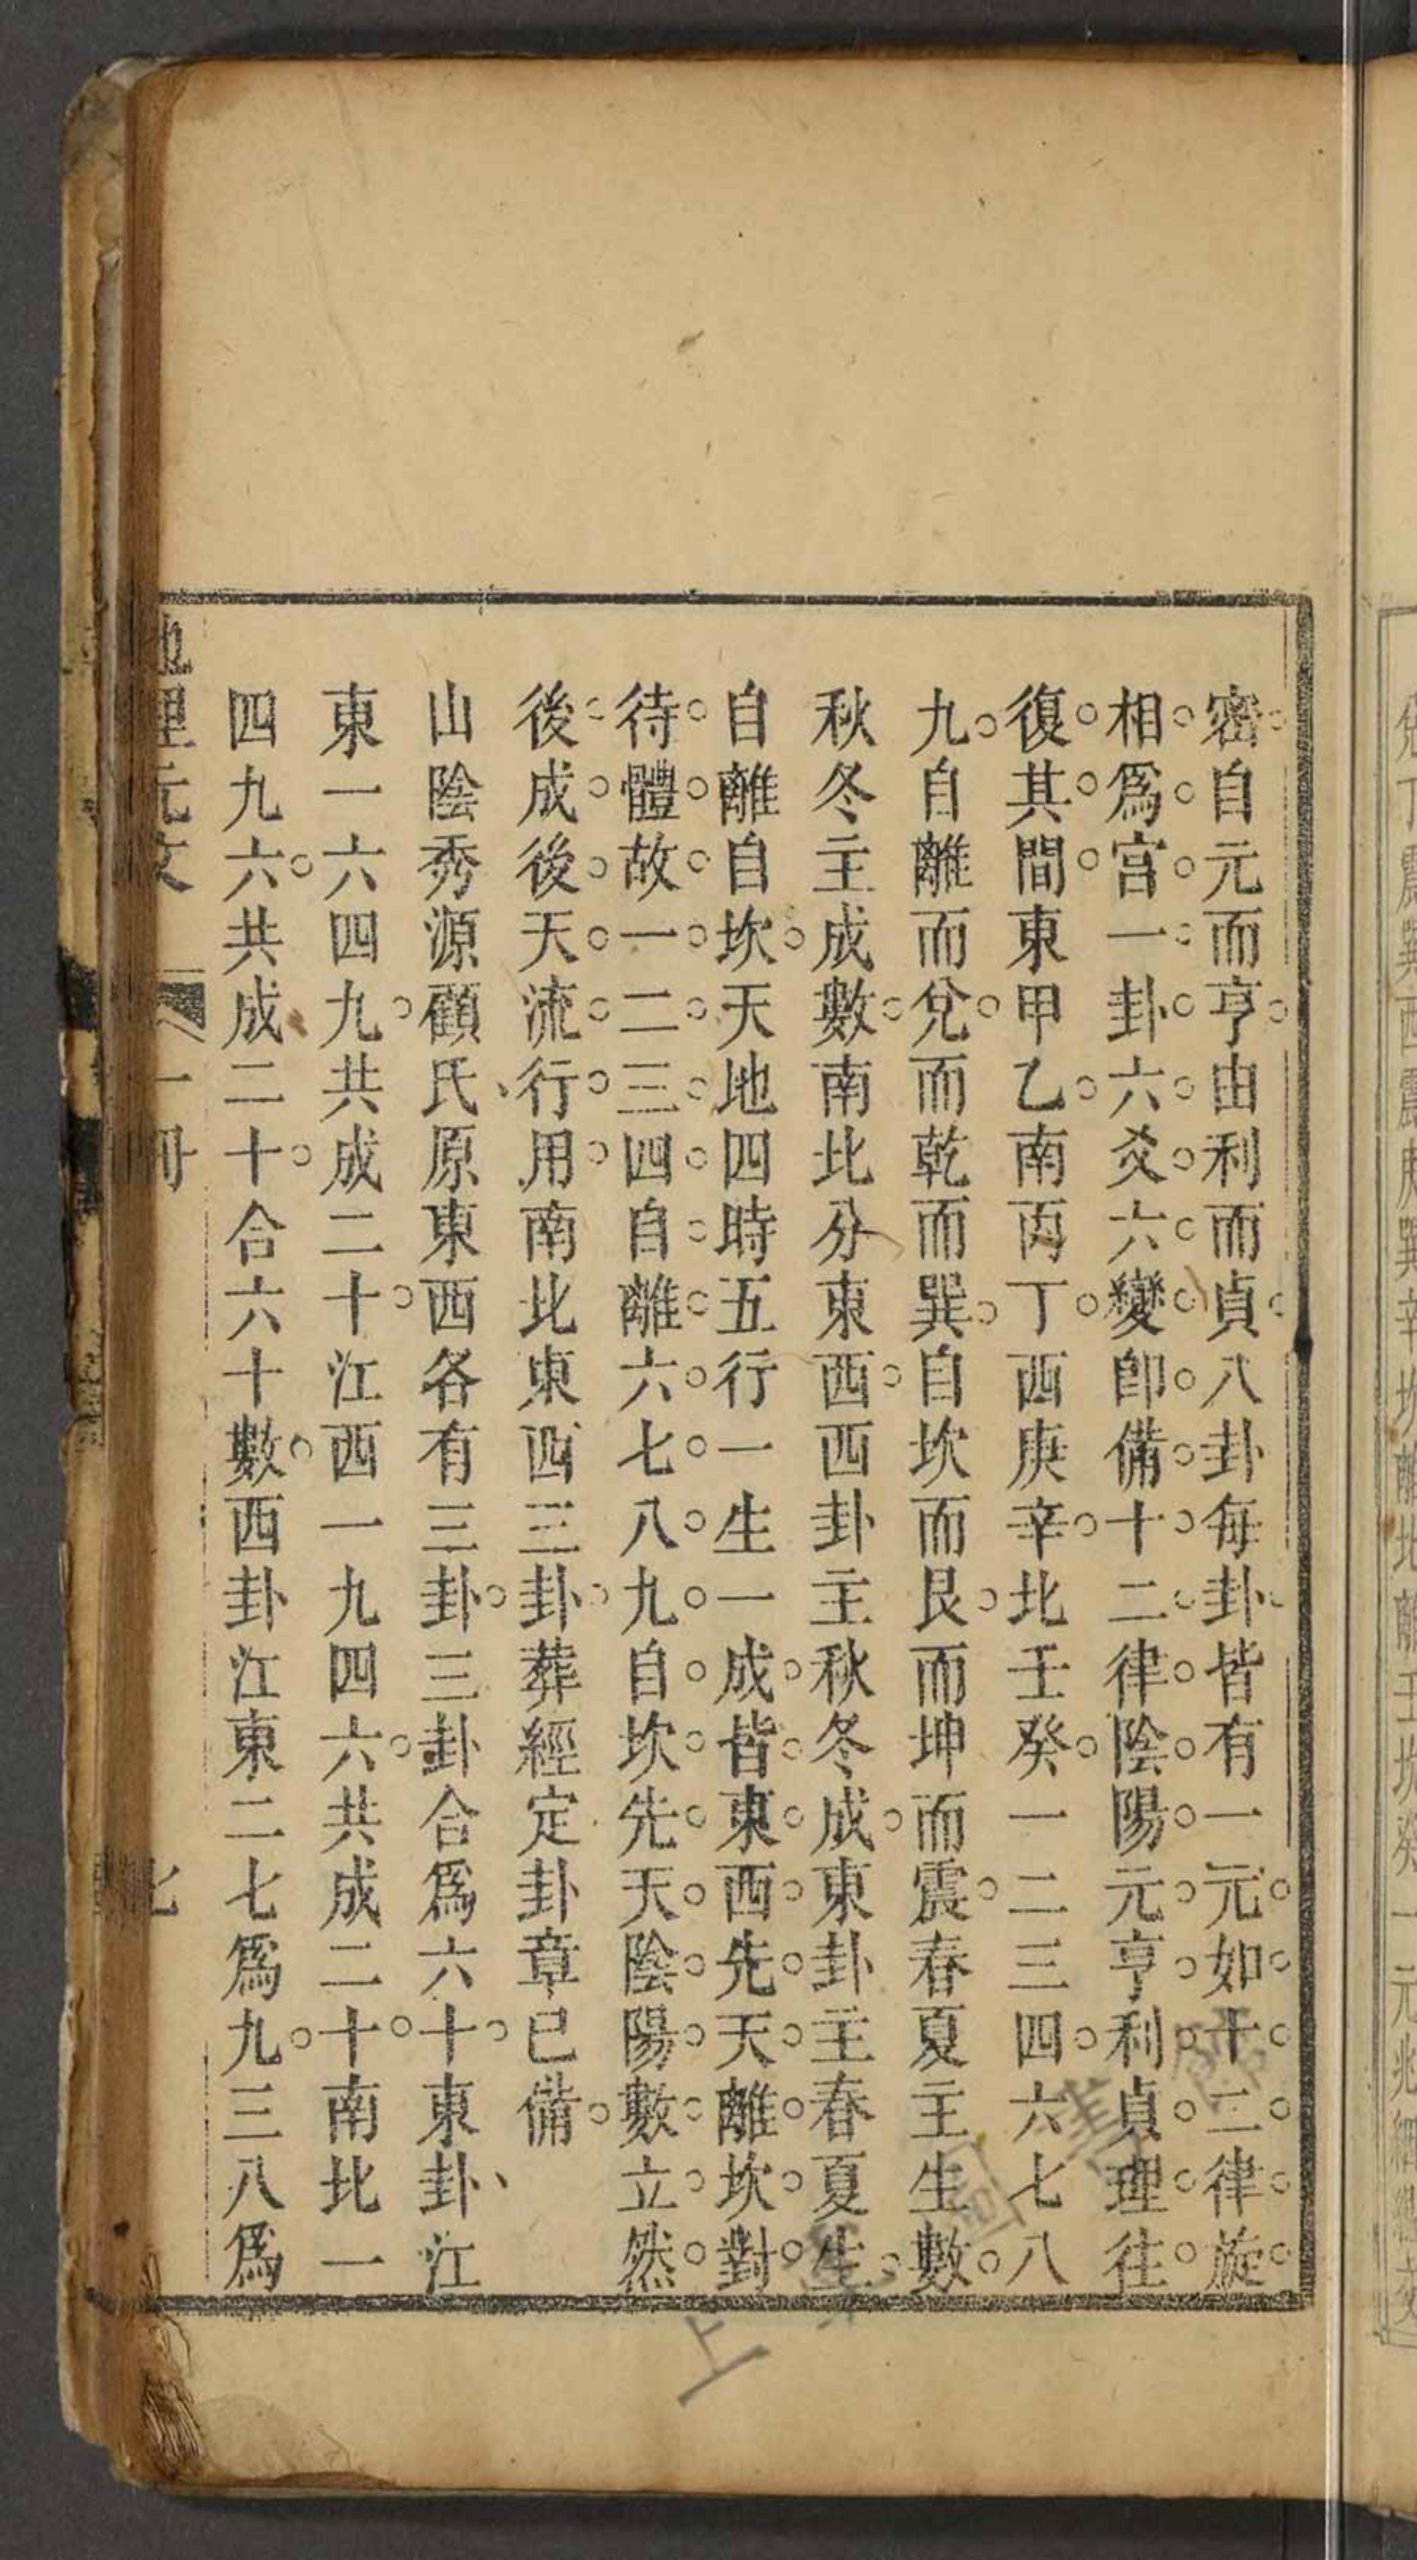 密自元而亨由利而貞八卦每卦皆有一元如十二律旋
相爲宮一卦六爻六變卽備十二律陰陽元亨利貞理往
復其間東甲乙南丙丁西庚辛北壬癸一二三四六七八
九自離而兌而乾而巽自坎而艮而坤而震春夏主生數
秋冬主成數南北分東西西卦主秋冬成東卦主春夏生
自離自坎天地四時五行一生一成皆東西先天離坎對
待體故一二三四自離六七八九自坎先天陰陽數立然
後成後天流行用南北東西三卦葬經定卦章已備
山陰秀源顧氏原東西各有三卦三卦合爲六十東卦江
東一六四九共成二十江西一九四六共成二十南北一
四九六共成二十合六十數西卦江東二七爲九三八爲
地理元文 一冊 七
上 圖書館